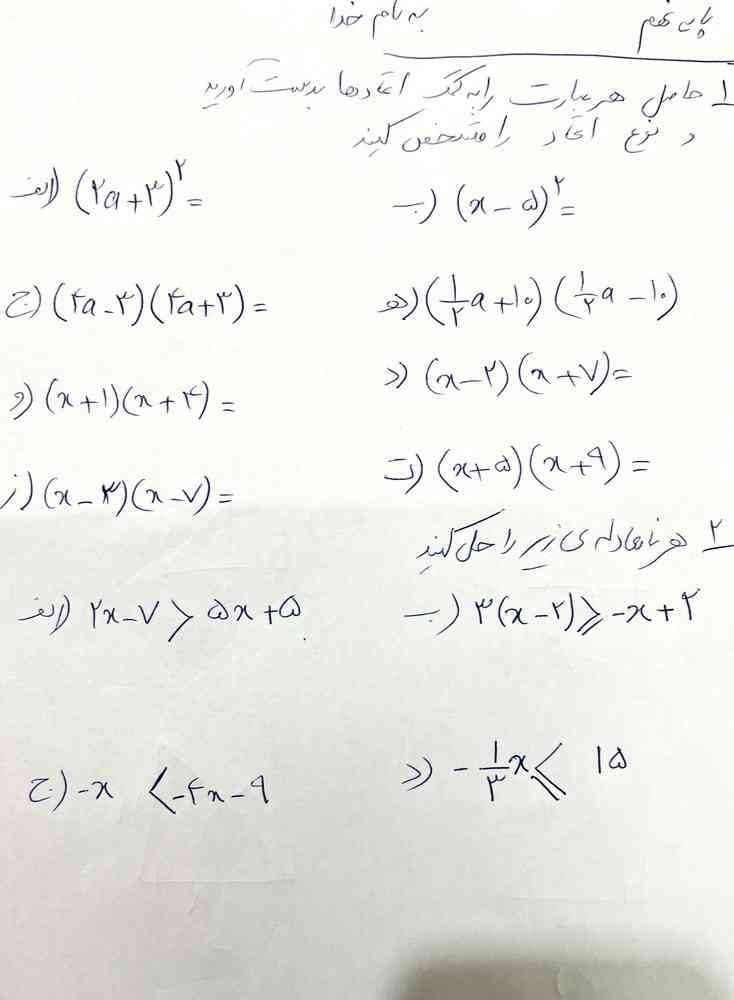 پایه نهم
به نام خدا
۱ حاصل هر عبارت را به کمک اتحادها بدست آورید
و نوع اتحاد را مشخص کنید
الف) (۲a+۳)^۲ =
ب) (x-۵)^۲ =
ج) (۴a-۳)(۴a+۳) =
هـ) (۱/۲ a+۱۰)(۱/۲ a-۱۰)
د) (x-۲)(x+۷) =
و) (x+۱)(x+۴) =
ت) (x+۵)(x+۹) =
ز) (x-۳)(x-۷) =
۲ هر نامعادله ی زیر را حل کنید
الف) ۲x-۷ > ۵x+۵
ب) ۳(x-۲) ≥ -x+۲
ج) -x < -۴x-۹
د) -۱/۳ x ≤ ۱۵